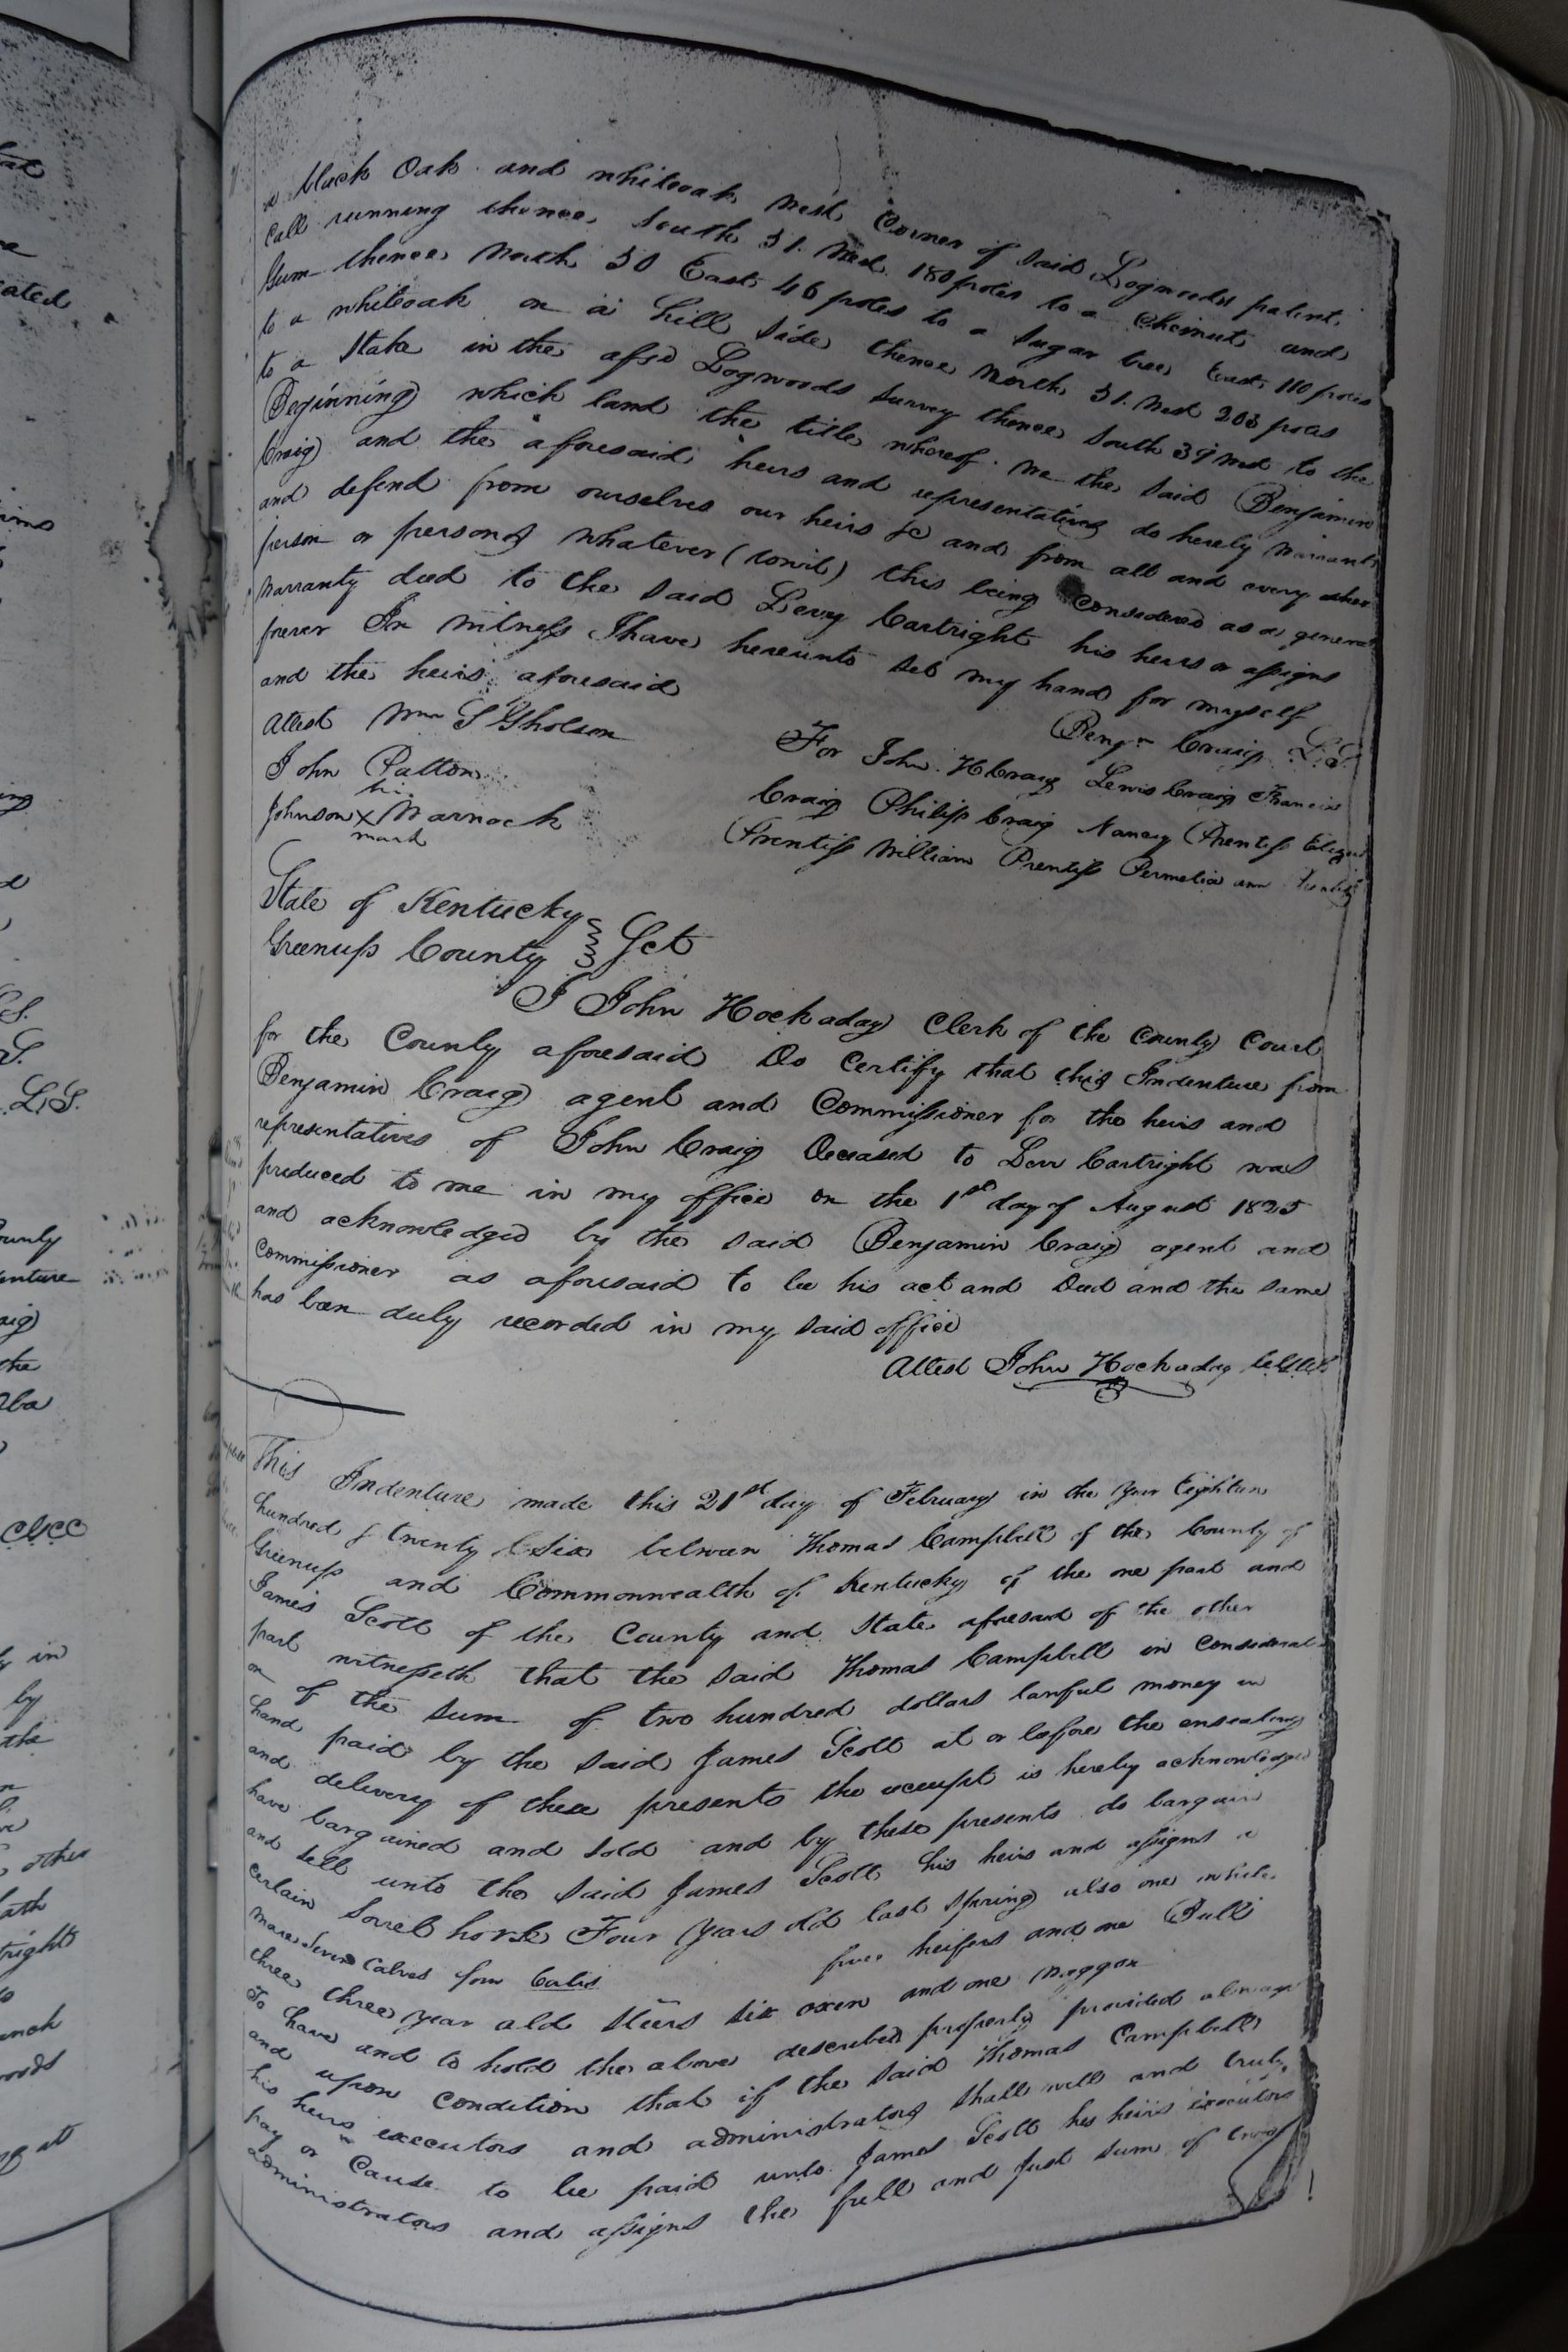 a black Oak and whiteoak West Corner of said Logwoods patent
Call running thence South 51. West 180 poles to a Chesnut and
Gum thence North 50 East 46 poles to a Sugar tree East 110 poles
to a whiteoak on a hill side thence North 51. West 203 poles
to a Stake in the afsd Logwoods survey thence South 39 West to the
Beginning which land the title whereof we the said Benjamin
Craig and the aforesaid heirs and representatives do hereby warrant
and defend from ourselves our heirs &c and from all and every other
person or persons whatever (towit) this being considered as a general
warranty deed to the said Levy Cartright his heirs or assigns
forever In witness I have hereunto set my hand for myself
and the heirs aforesaid
Benjn Craig L.S.
Attest Wm S Gholson
For John H Craig Lewis Craig Francis
John Patton
Craig Philip Craig Nancy Prentiss
his
Johnson X Warnock
mark
Prentiss William Prentiss Permelia ann
State of Kentucky
Greenup County Sct
I John Hockaday Clerk of the County Court
for the County aforesaid Do Certify that this Indenture from
Benjamin Craig agent and Commissioner for the heirs and
representatives of John Craig Deceased to Levi Cartright was
produced to me in my office on the 1st day of August 1825
and acknowledged by the said Benjamin Craig agent and
Commissioner as aforesaid to be his act and Deed and the same
has been duly recorded in my said office
Attest John Hockaday
This Indenture made this 21st day of February in the year Eighteen
hundred & twenty Six between Thomas Campbell of the County of
Greenup and Commonwealth of Kentucky of the one part and
James Scott of the County and State aforesaid of the other
part witnesseth that the said Thomas Campbell in Considerati
on of the sum of two hundred dollars lawful money in
hand paid by the said James Scott at or before the ensealing
and delivery of these presents the receipt is hereby acknowledged
have bargained and sold and by these presents do bargain
and sell unto the said James Scott his heirs and assigns a
certain Sorrel horse Four years old last Spring also one white
mare Seven Calves four heifers and one Bull
three three year old Steers six oxen and one waggon
To have and to hold the above described property provided always
and upon Condition that if the said Thomas Campbell
his heirs executors and administrators shall well and truly
pay or Cause to be paid unto James Scott his heirs executors
administrators and assigns the full and Just sum of two